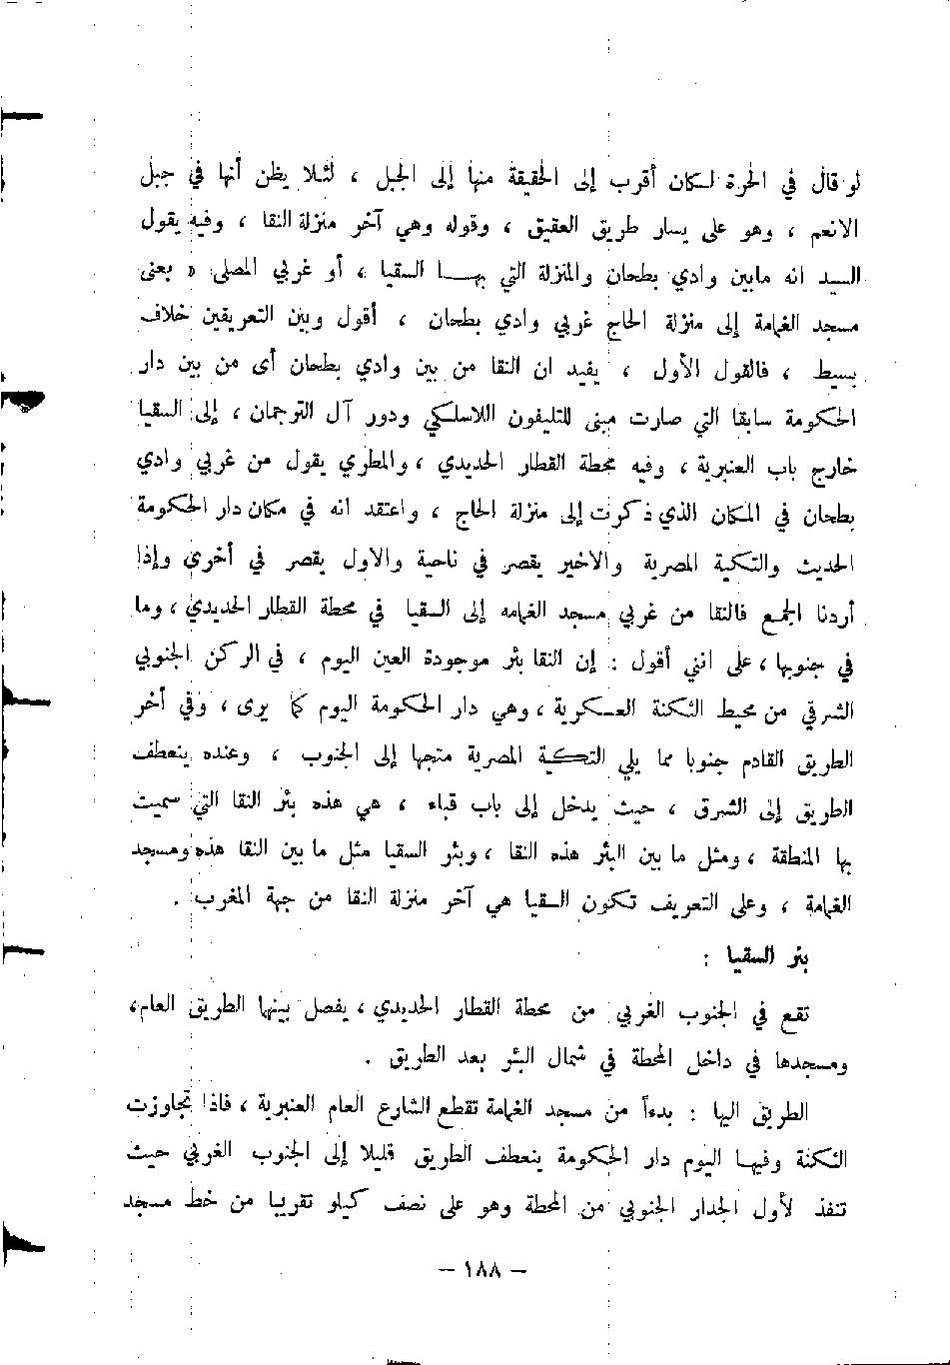 لو قال في الحرة لكان أقرب إلى الحقيقة منها إلى الجبل ، لئلا يظن أنها في جبل
الانعم ، وهو على يسار طريق العقيق ، وقوله وهي آخر منزلة النقا ، وفيه يقول
السيد انه مابين وادي بطحان والمنزلة التي بها السقيا ، أو غربي المصلى « بعنى
مسجد الغمامة إلى منزلة الحاج غربي وادي بطحان ، أقول وبين التعريفين خلاف
بسيط ، فالقول الأول ، يفيد ان النقا من بين وادي بطحان أى من بين دار
الحكومة سابقا التي صارت مبنى للتليفون اللاسلكي ودور آل الترجمان ، إلى السقيا
خارج باب العنبرية ، وفيه محطة القطار الحديدي ، والمطري يقول من غربي وادي
بطحان في المكان الذي ذكرت إلى منزلة الحاج ، واعتقد انه في مكان دار الحكومة
الحديث والتكية المصرية والاخير يقصر في ناحية والاول يقصر في أخرى وإذا
أردنا الجمع فالنقا من غربي مسجد الغمامه إلى السقيا في محطة القطار الحديدي ، وما
في جنوبها ، على انني أقول : إن النقا بئر موجودة العين اليوم ، في الركن الجنوبي
الشرقي من محيط الثكنة العسكرية ، وهي دار الحكومة اليوم كما يرى ، وفي أخر
الطريق القادم جنوبا مما يلي التكية المصرية متجها إلى الجنوب ، وعنده ينعطف
الطريق إلى الشرق ، حيث يدخل إلى باب قباء ، هي هذه بئر النقا التي سميت
بها المنطقة ، ومثل ما بين البئر هذه النقا ، وبئر السقيا مثل ما بين النقا هذه ومسجد
الغمامة ، وعلى التعريف تكون السقيا هي آخر منزلة النقا من جهة المغرب .
بئر السقيا :
تقع في الجنوب الغربي من محطة القطار الحديدي ، يفصل بينها الطريق العام،
ومسجدها في داخل المحطة في شمال البئر بعد الطريق .
الطريق اليها : بدءاً من مسجد الغمامة تقطع الشارع العام العنبرية ، فاذا تجاوزت
الثكنة وفيها اليوم دار الحكومة ينعطف الطريق قليلا إلى الجنوب الغربي حيث
تنفذ لأول الجدار الجنوبي من المحطة وهو على نصف كيلو تقريبا من خط مسجد
— ١٨٨ —